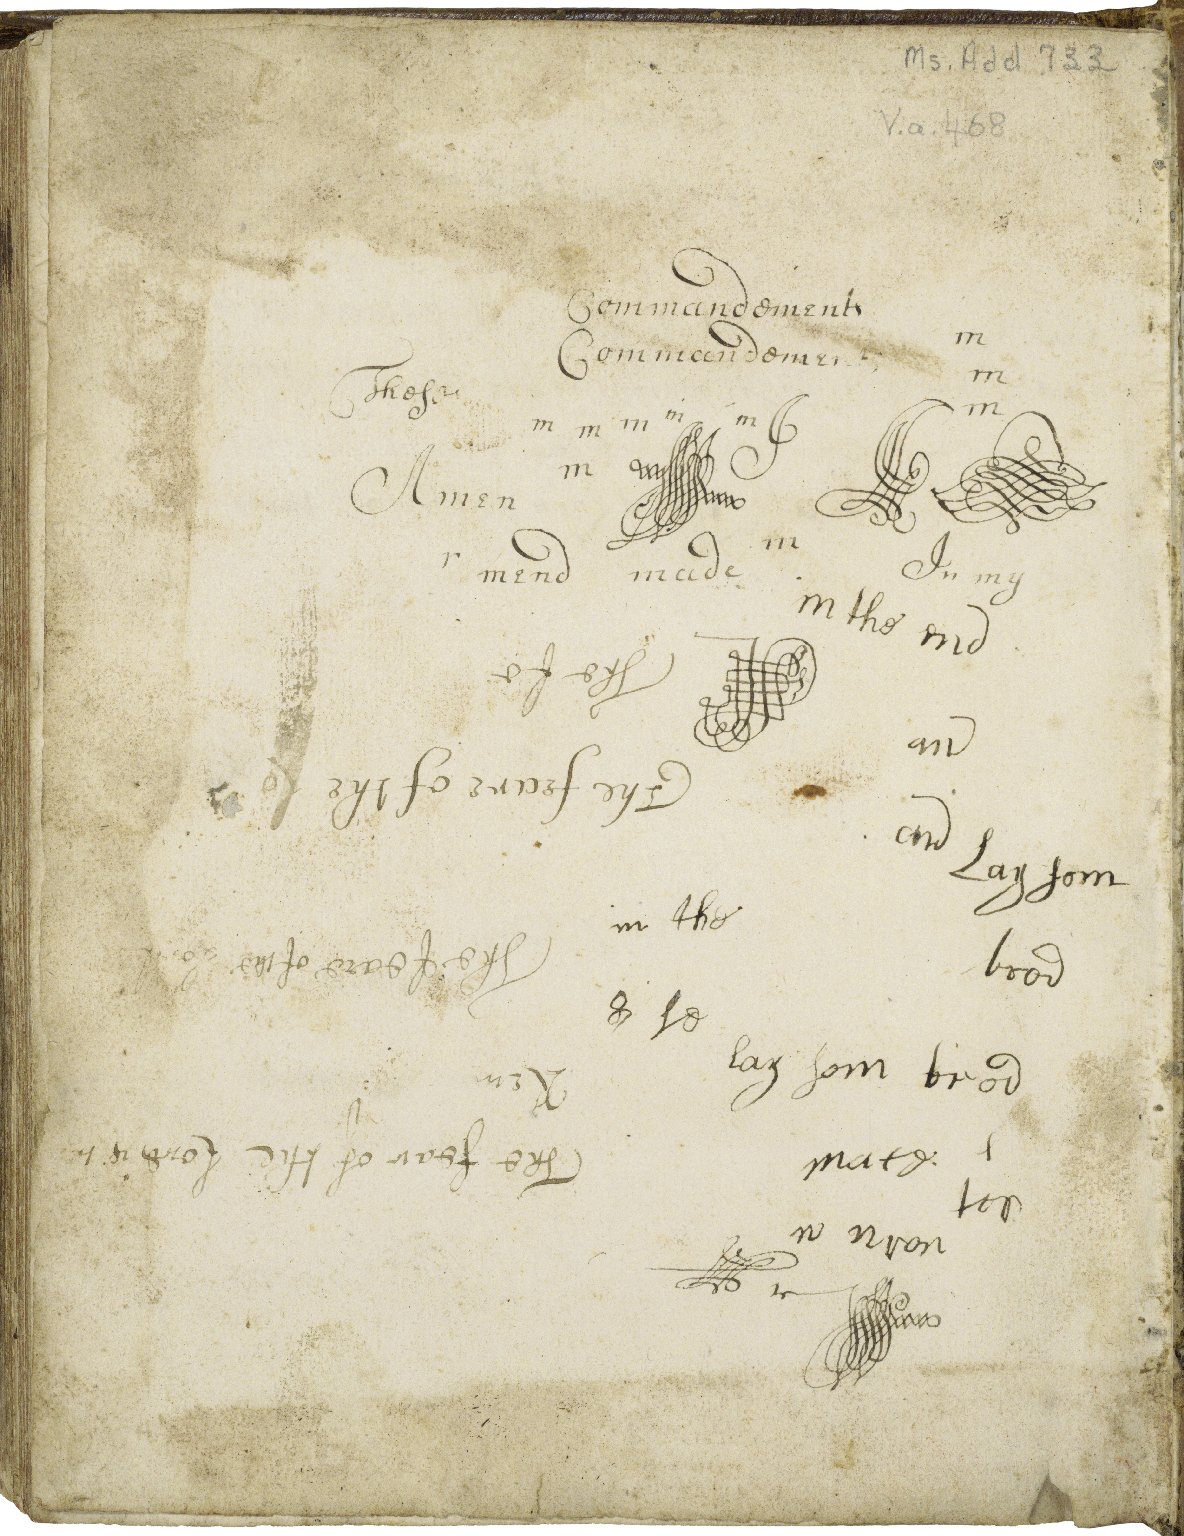 Ms. Add 733
V.a. 468
Commandements
Commandements
m
m
These
m
m m m m m
Amen m
m
mend made
In my
in the end
The fe
an
The feare of the
and
Lay som
in the
The feare of the Lord
brod
lay som brod
Rem
The fear of the Lord is
mate